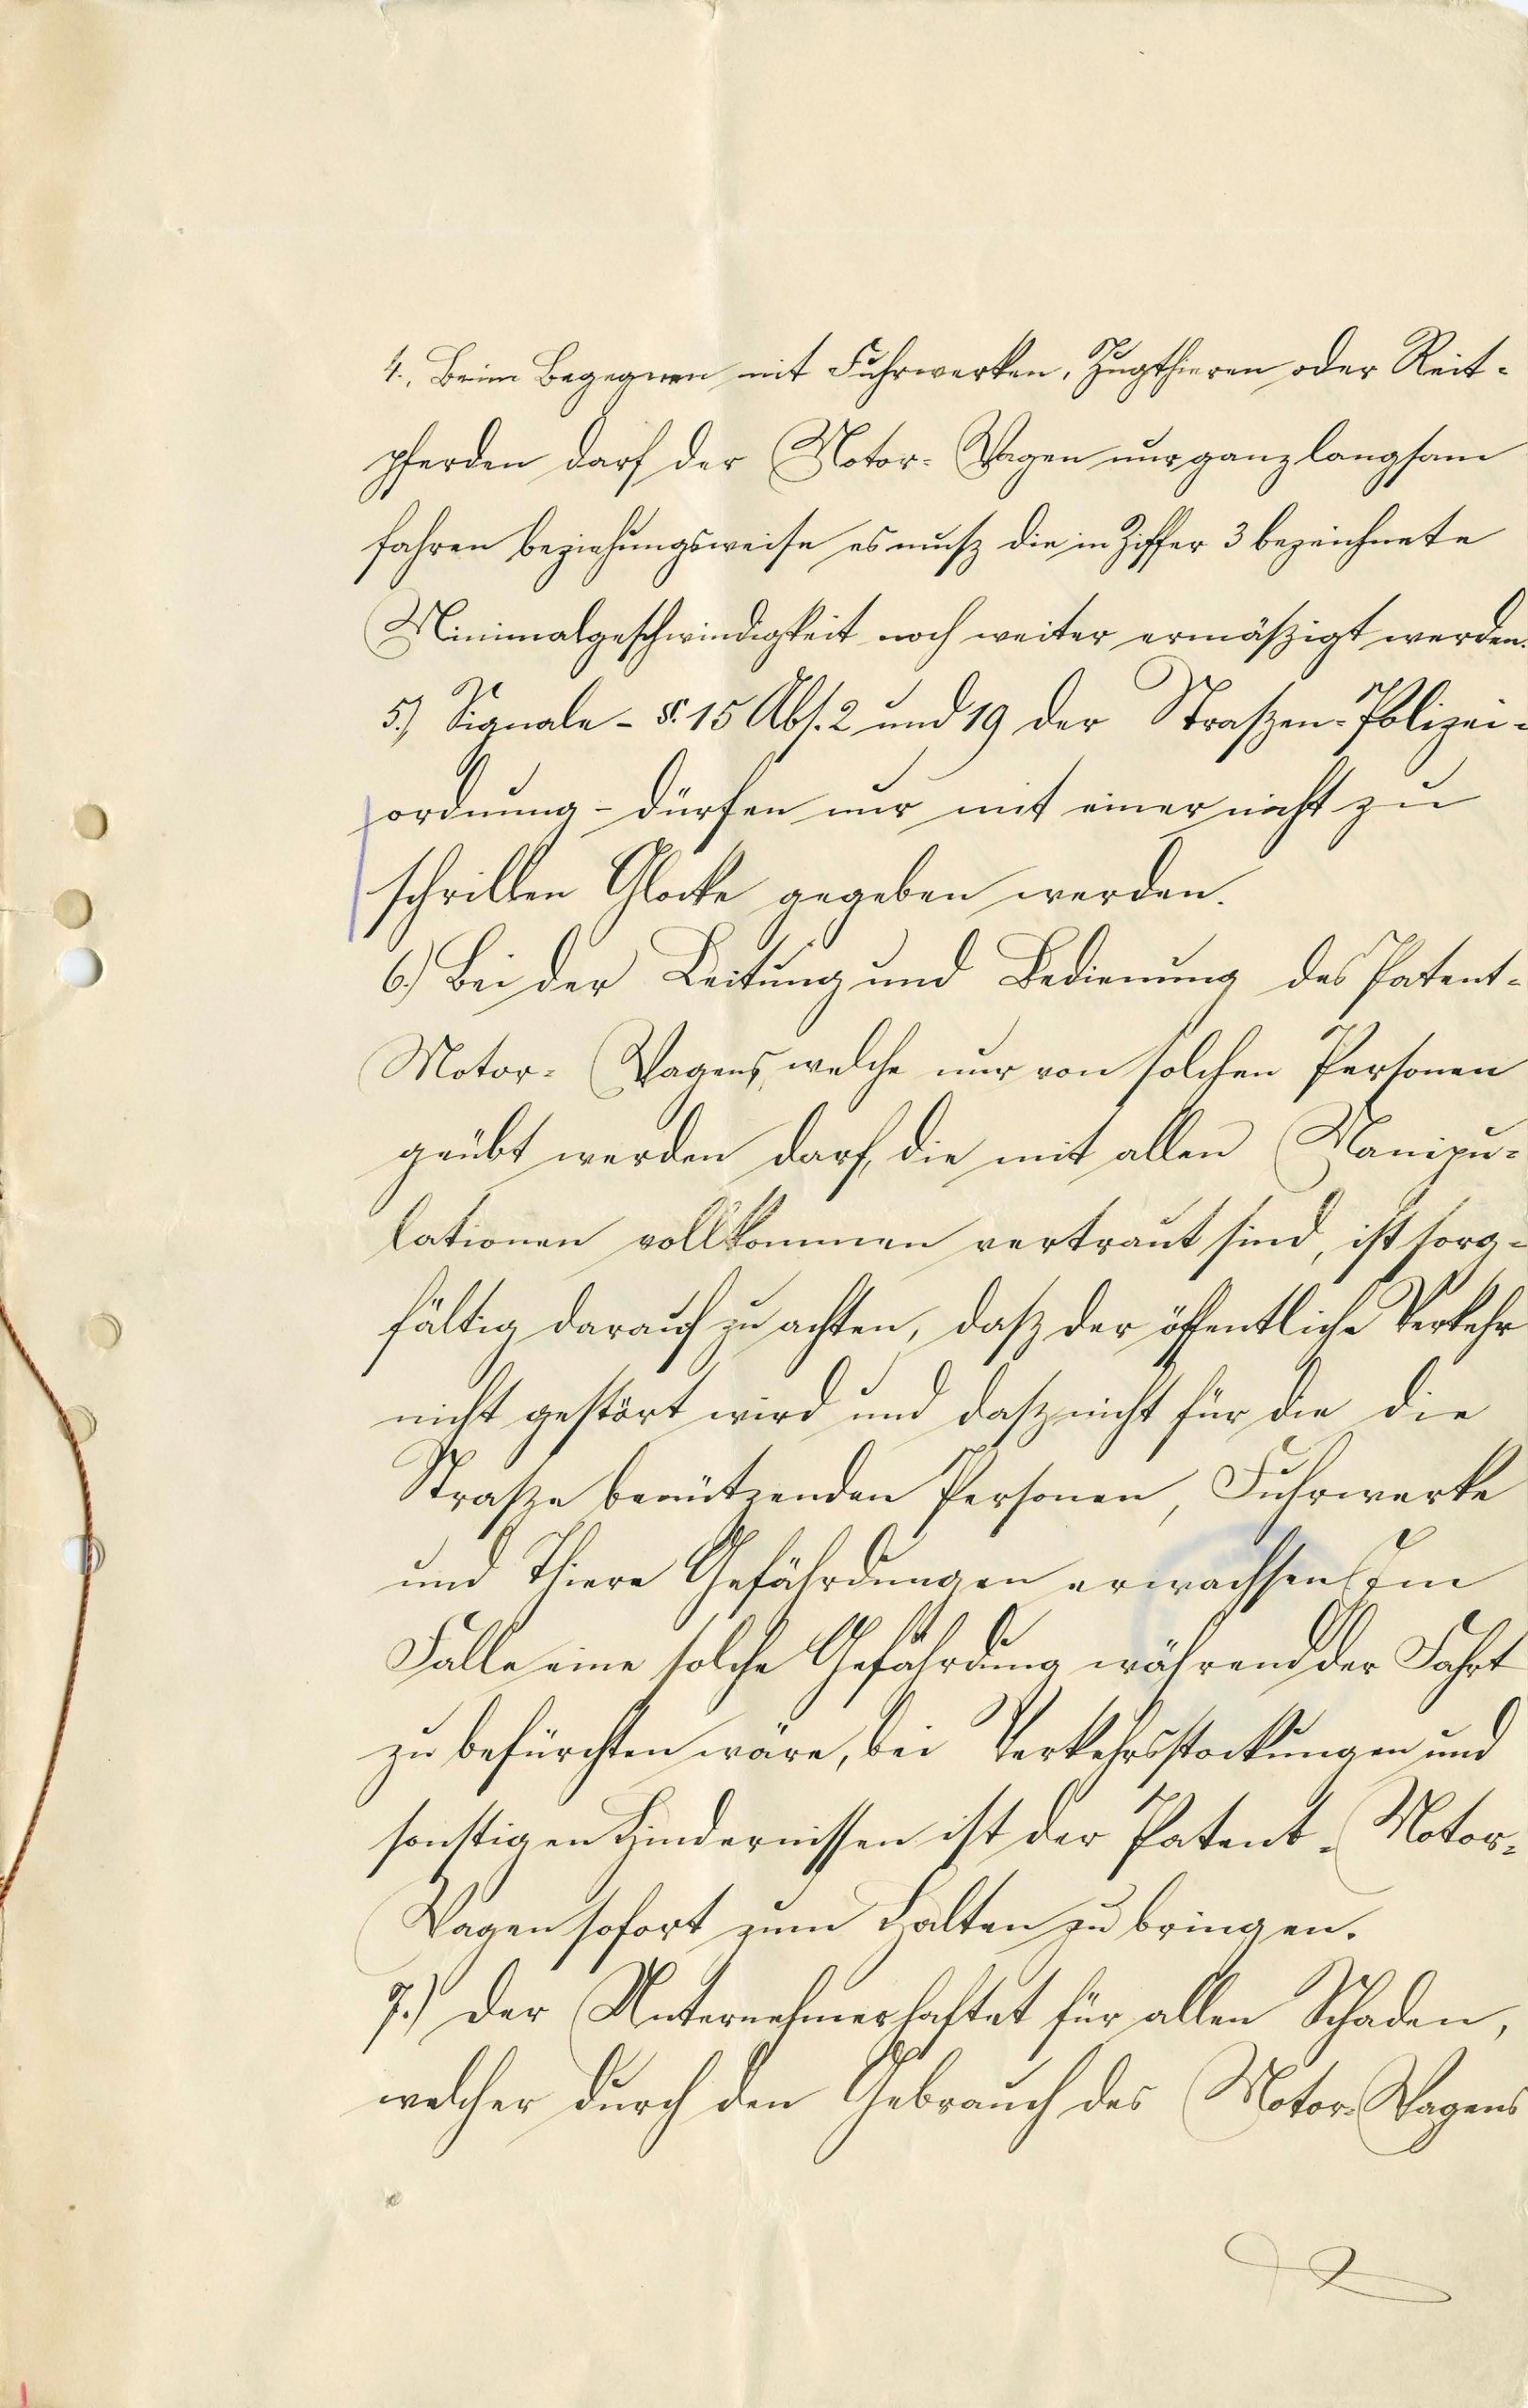 4., Beim Begegnen mit Fuhrwerken, Zugthieren oder Reit-
pferden darf der Motor-Wagen nur ganz langsam
fahren beziehungsweise es muß die in Ziffer 3 bezeichnete
Minimalgeschwindigkeit noch weiter ermäßigt werden.
5.) Signale - §. 15 Abs. 2 und 19 der Straßen-Polizei-
ordnung - dürfen nur mit einer nicht zu
schrillen Glocke gegeben werden.
6.) Bei der Leitung und Bedienung des Patent-
Motor-Wagens, welche nur von solchen Personen
geübt werden darf, die mit allen Manipu-
lationen vollkommen vertraut sind, ist sorg-
fältig darauf zu achten, daß der öffentliche Verkehr
nicht gestört wird und daß nicht für die die
Straße benützenden Personen, Fuhrwerke
und Thiere Gefährdungen erwachsen. Im
Falle eine solche Gefährdung während der Fahrt
zu befürchten wäre, bei Verkehrsstockungen und
sonstigen Hindernissen ist der Patent-Motor-
Wagen sofort zum Halten zu bringen.
7.) Der Unternehmer haftet für allen Schaden,
welcher durch den Gebrauch des Motor-Wagens